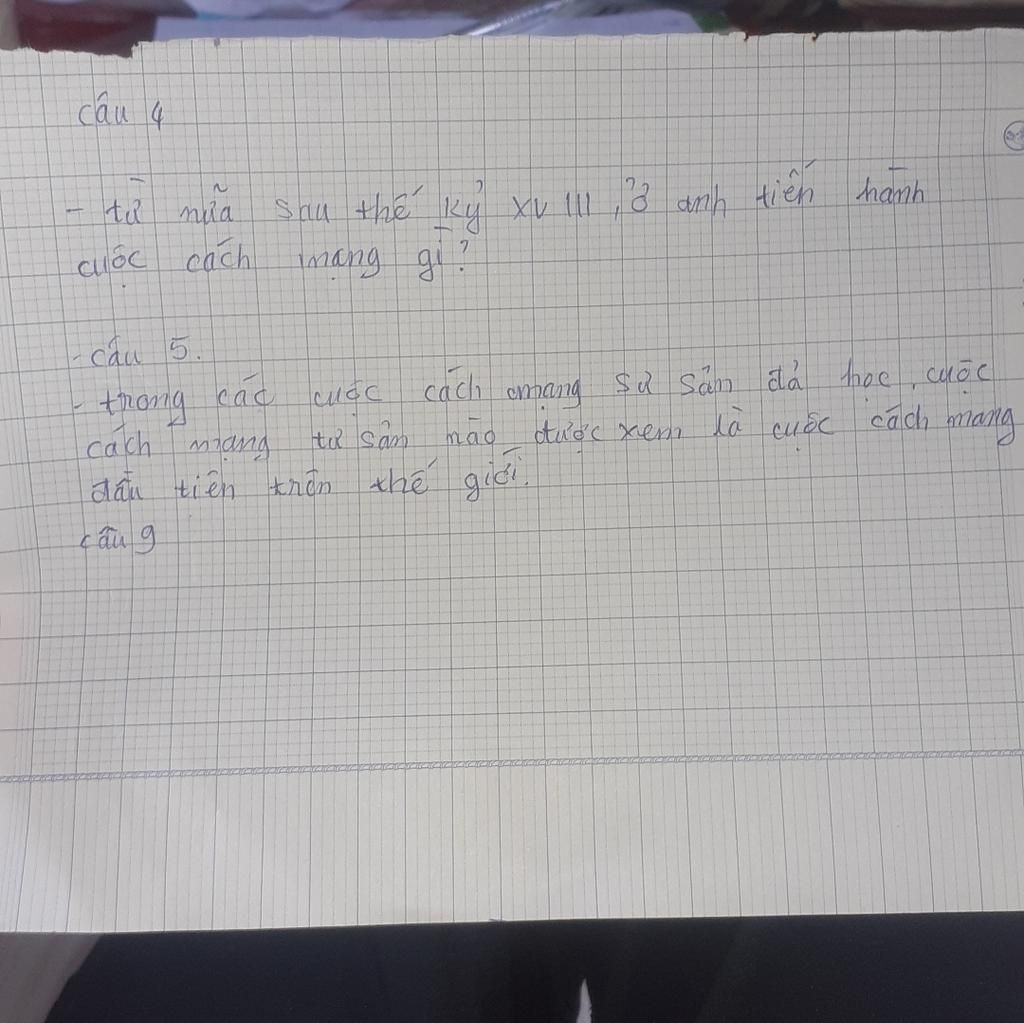 câu 4
- từ nữa sau thế kỷ XV III, ở anh tiến hành
cuộc cách mạng gì?
- câu 5.
- trong các cuộc cách mạng sư sản đả học, cuộc
cách mạng tư sản nào được xem là cuộc cách mang
đầu tiên trên thế giới.
câu 9